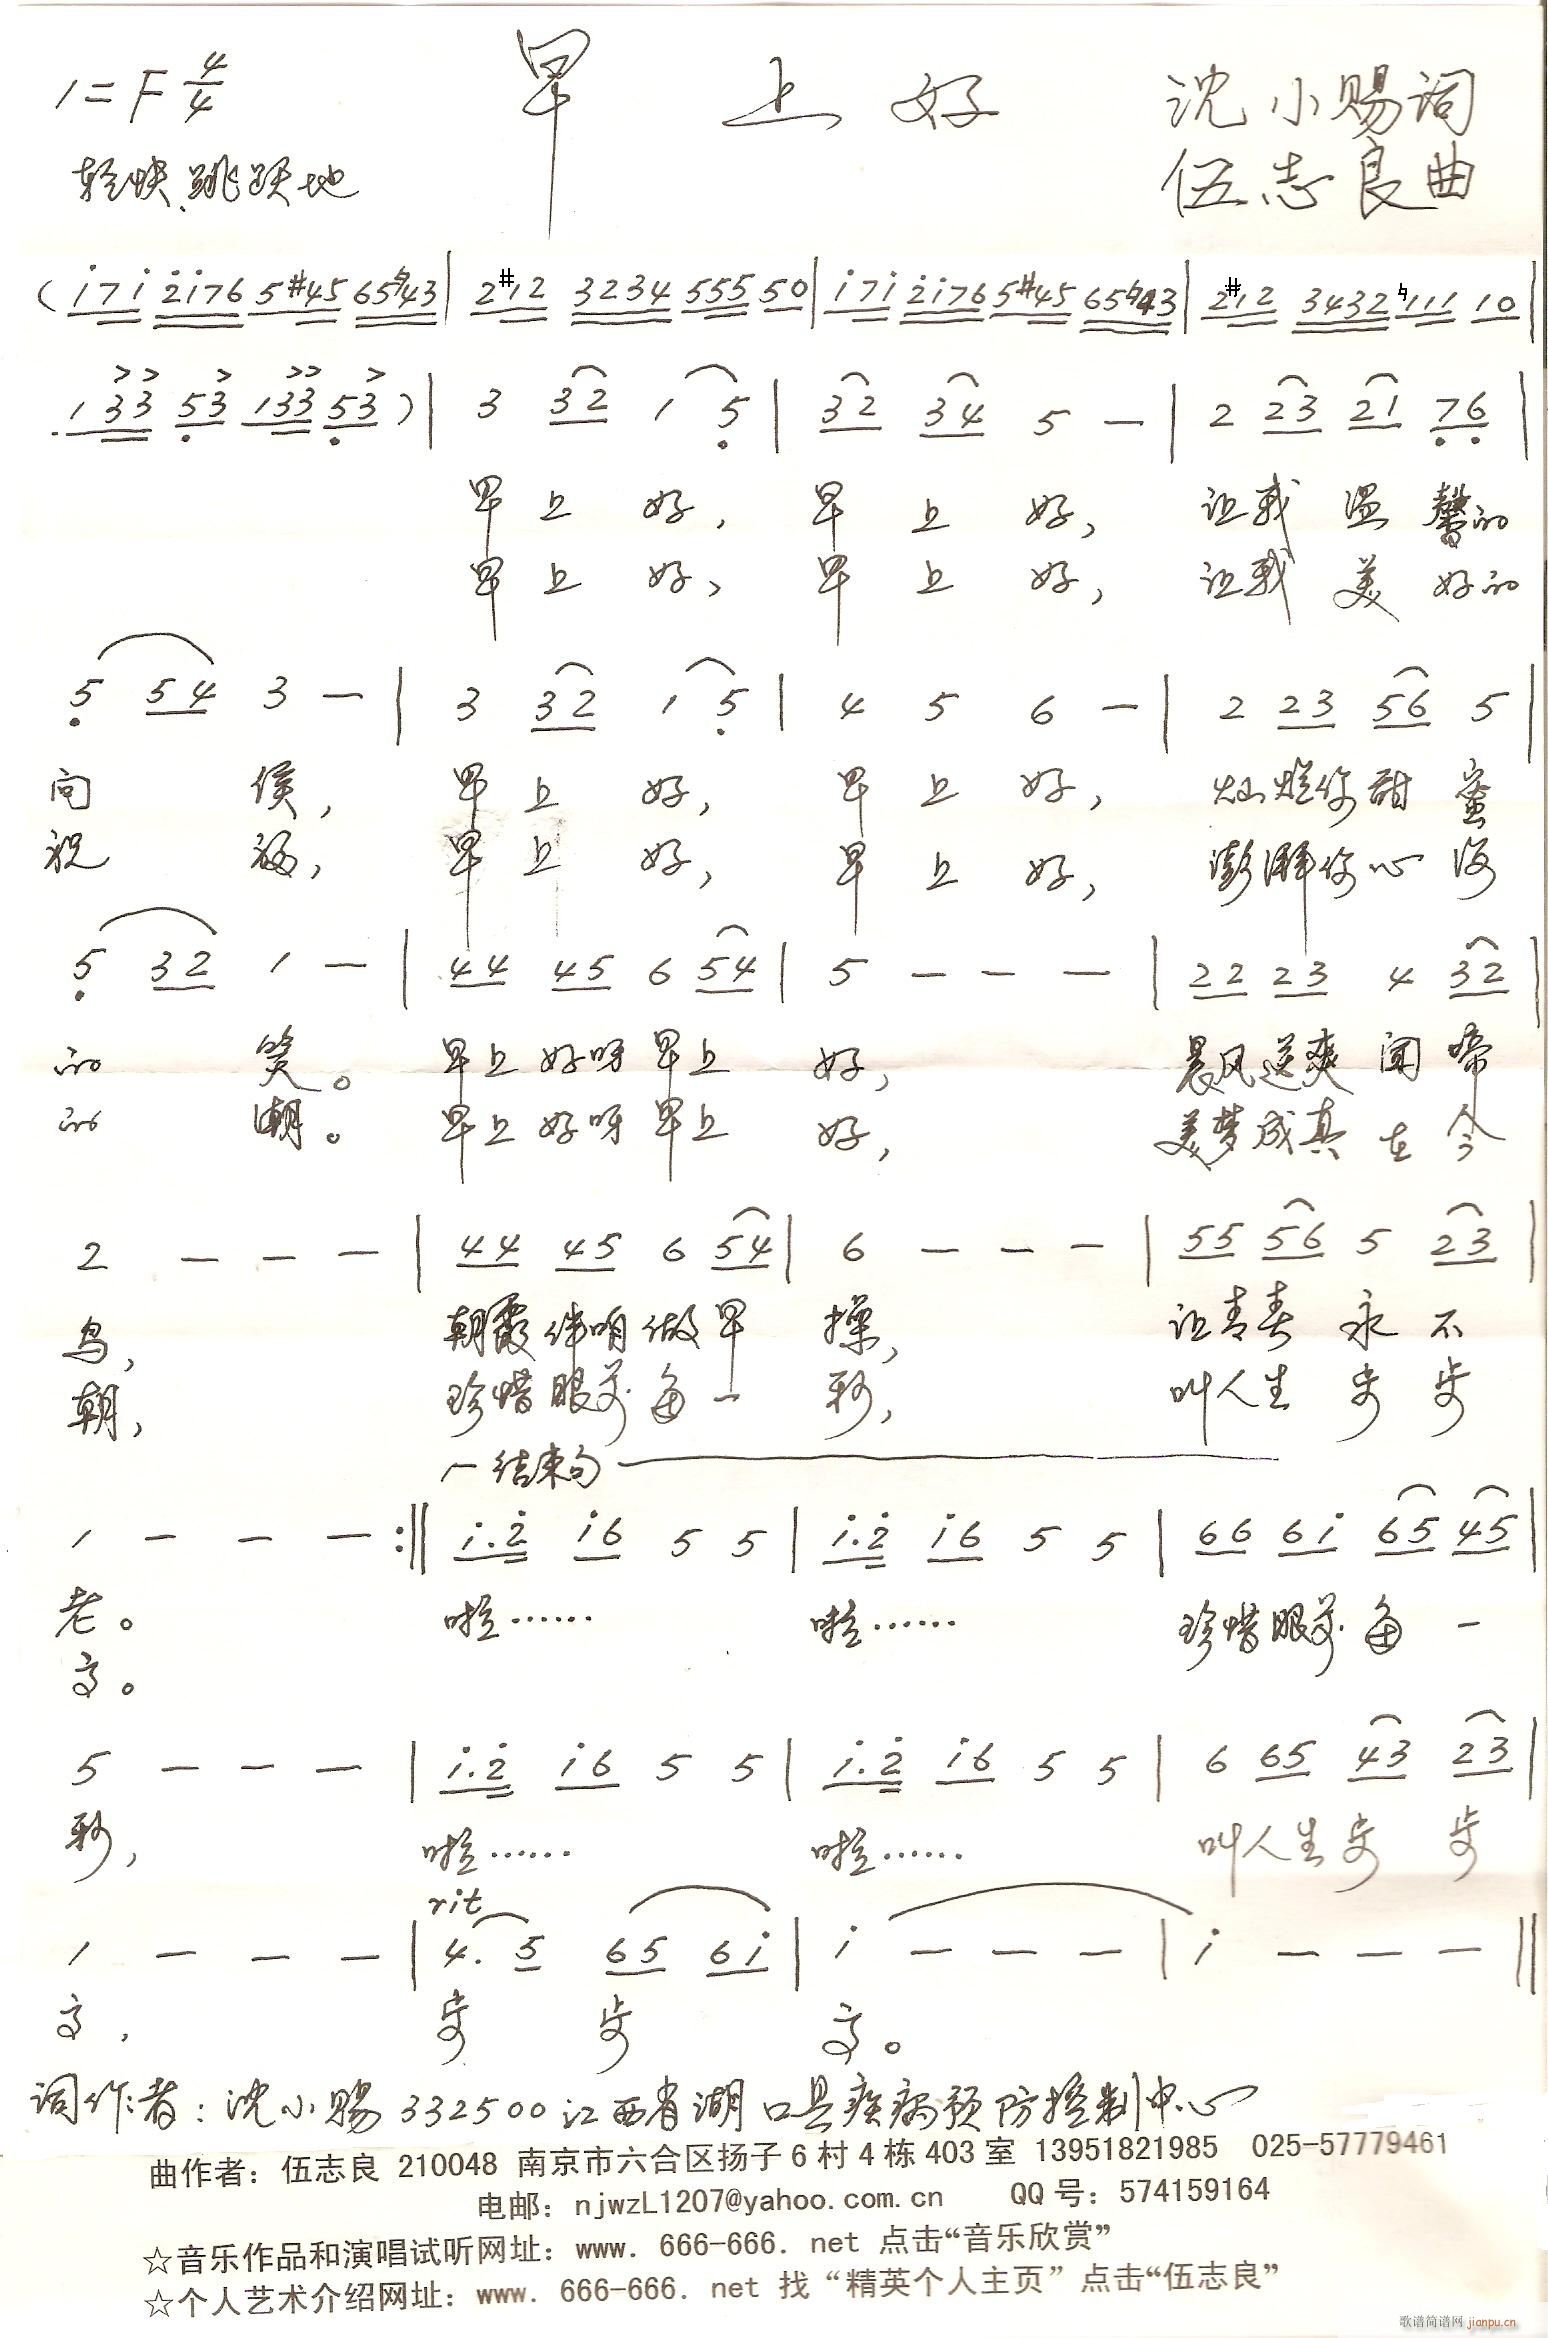 1=F 4/4 早上好 沈小赐词
轻快、跳跃地 伍志良曲
(i7i 2i76 5#45 65♮43 | 2#12 3234 555 50 | i7i 2i76 5#45 65♮43 | 2#12 3432 ♮111 10 |
133 53 133 53) | 3 32 1 5 | 32 34 5 — | 2 23 21 76 |
早上好, 早上好, 让我温馨的
早上好, 早上好, 让我美好的
5 54 3 — | 3 32 1 5 | 4 5 6 — | 2 23 56 5 |
问候, 早上好, 早上好, 灿烂你甜蜜
祝福, 早上好, 早上好, 澎湃你心海
5 32 1 — | 44 45 6 54 | 5 — — — | 22 23 4 32 |
的笑。 早上好呀早上好, 晨风送爽闻啼
的潮。 早上好呀早上好, 美梦成真在今
2 — — — | 44 45 6 54 | 6 — — — | 55 56 5 23 |
鸟, 朝霞伴咱做早操, 让青春永不
朝, 珍惜眼前每一秒, 叫人生步步
结束句
1 — — — :‖ i.2 i6 5 5 | i.2 i6 5 5 | 66 6i 65 45 |
老。 啦…… 啦…… 珍惜眼前每一
高。
5 — — — | i.2 i6 5 5 | i.2 i6 5 5 | 6 65 43 23 |
秒, 啦…… 啦…… 叫人生步步
rit
1 — — — | 4. 5 65 6i | i — — — | i — — — ‖
高, 步步高。
词作者:沈小赐 332500 江西省湖口县疾病预防控制中心
曲作者:伍志良 210048 南京市六合区扬子6村4栋403室 13951821985 025-57779461
电邮:njwzL1207@yahoo.com.cn QQ号:574159164
☆音乐作品和演唱试听网址:www. 666-666. net 点击“音乐欣赏”
☆个人艺术介绍网址:www. 666-666. net 找“精英个人主页”点击“伍志良”
歌谱简谱网 jianpu.cn